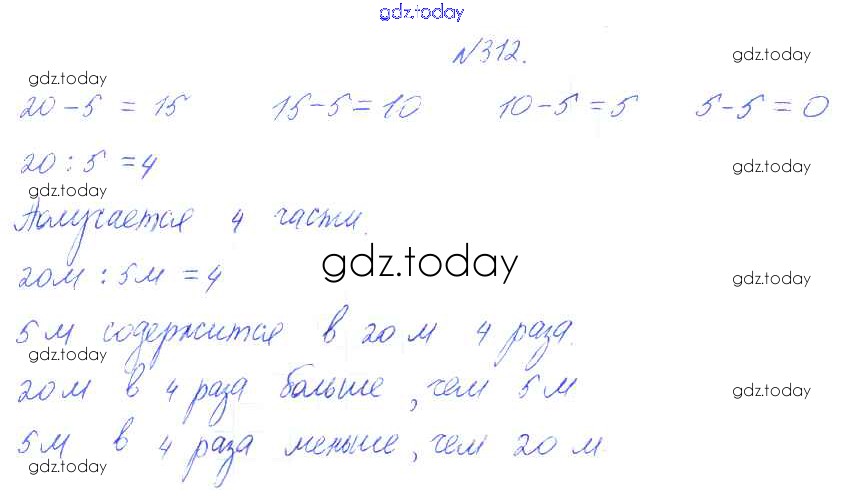 gdz.today
№312.
gdz.today
gdz.today
20 - 5 = 15 15 - 5 = 10 10 - 5 = 5 5 - 5 = 0
20 : 5 = 4
gdz.today
gdz.today
Получается 4 части.
gdz.today
20м : 5м = 4
gdz.today
5м содержится в 20м 4 раза.
gdz.today
20м в 4 раза больше, чем 5м
gdz.today
5м в 4 раза меньше, чем 20м.
gdz.today